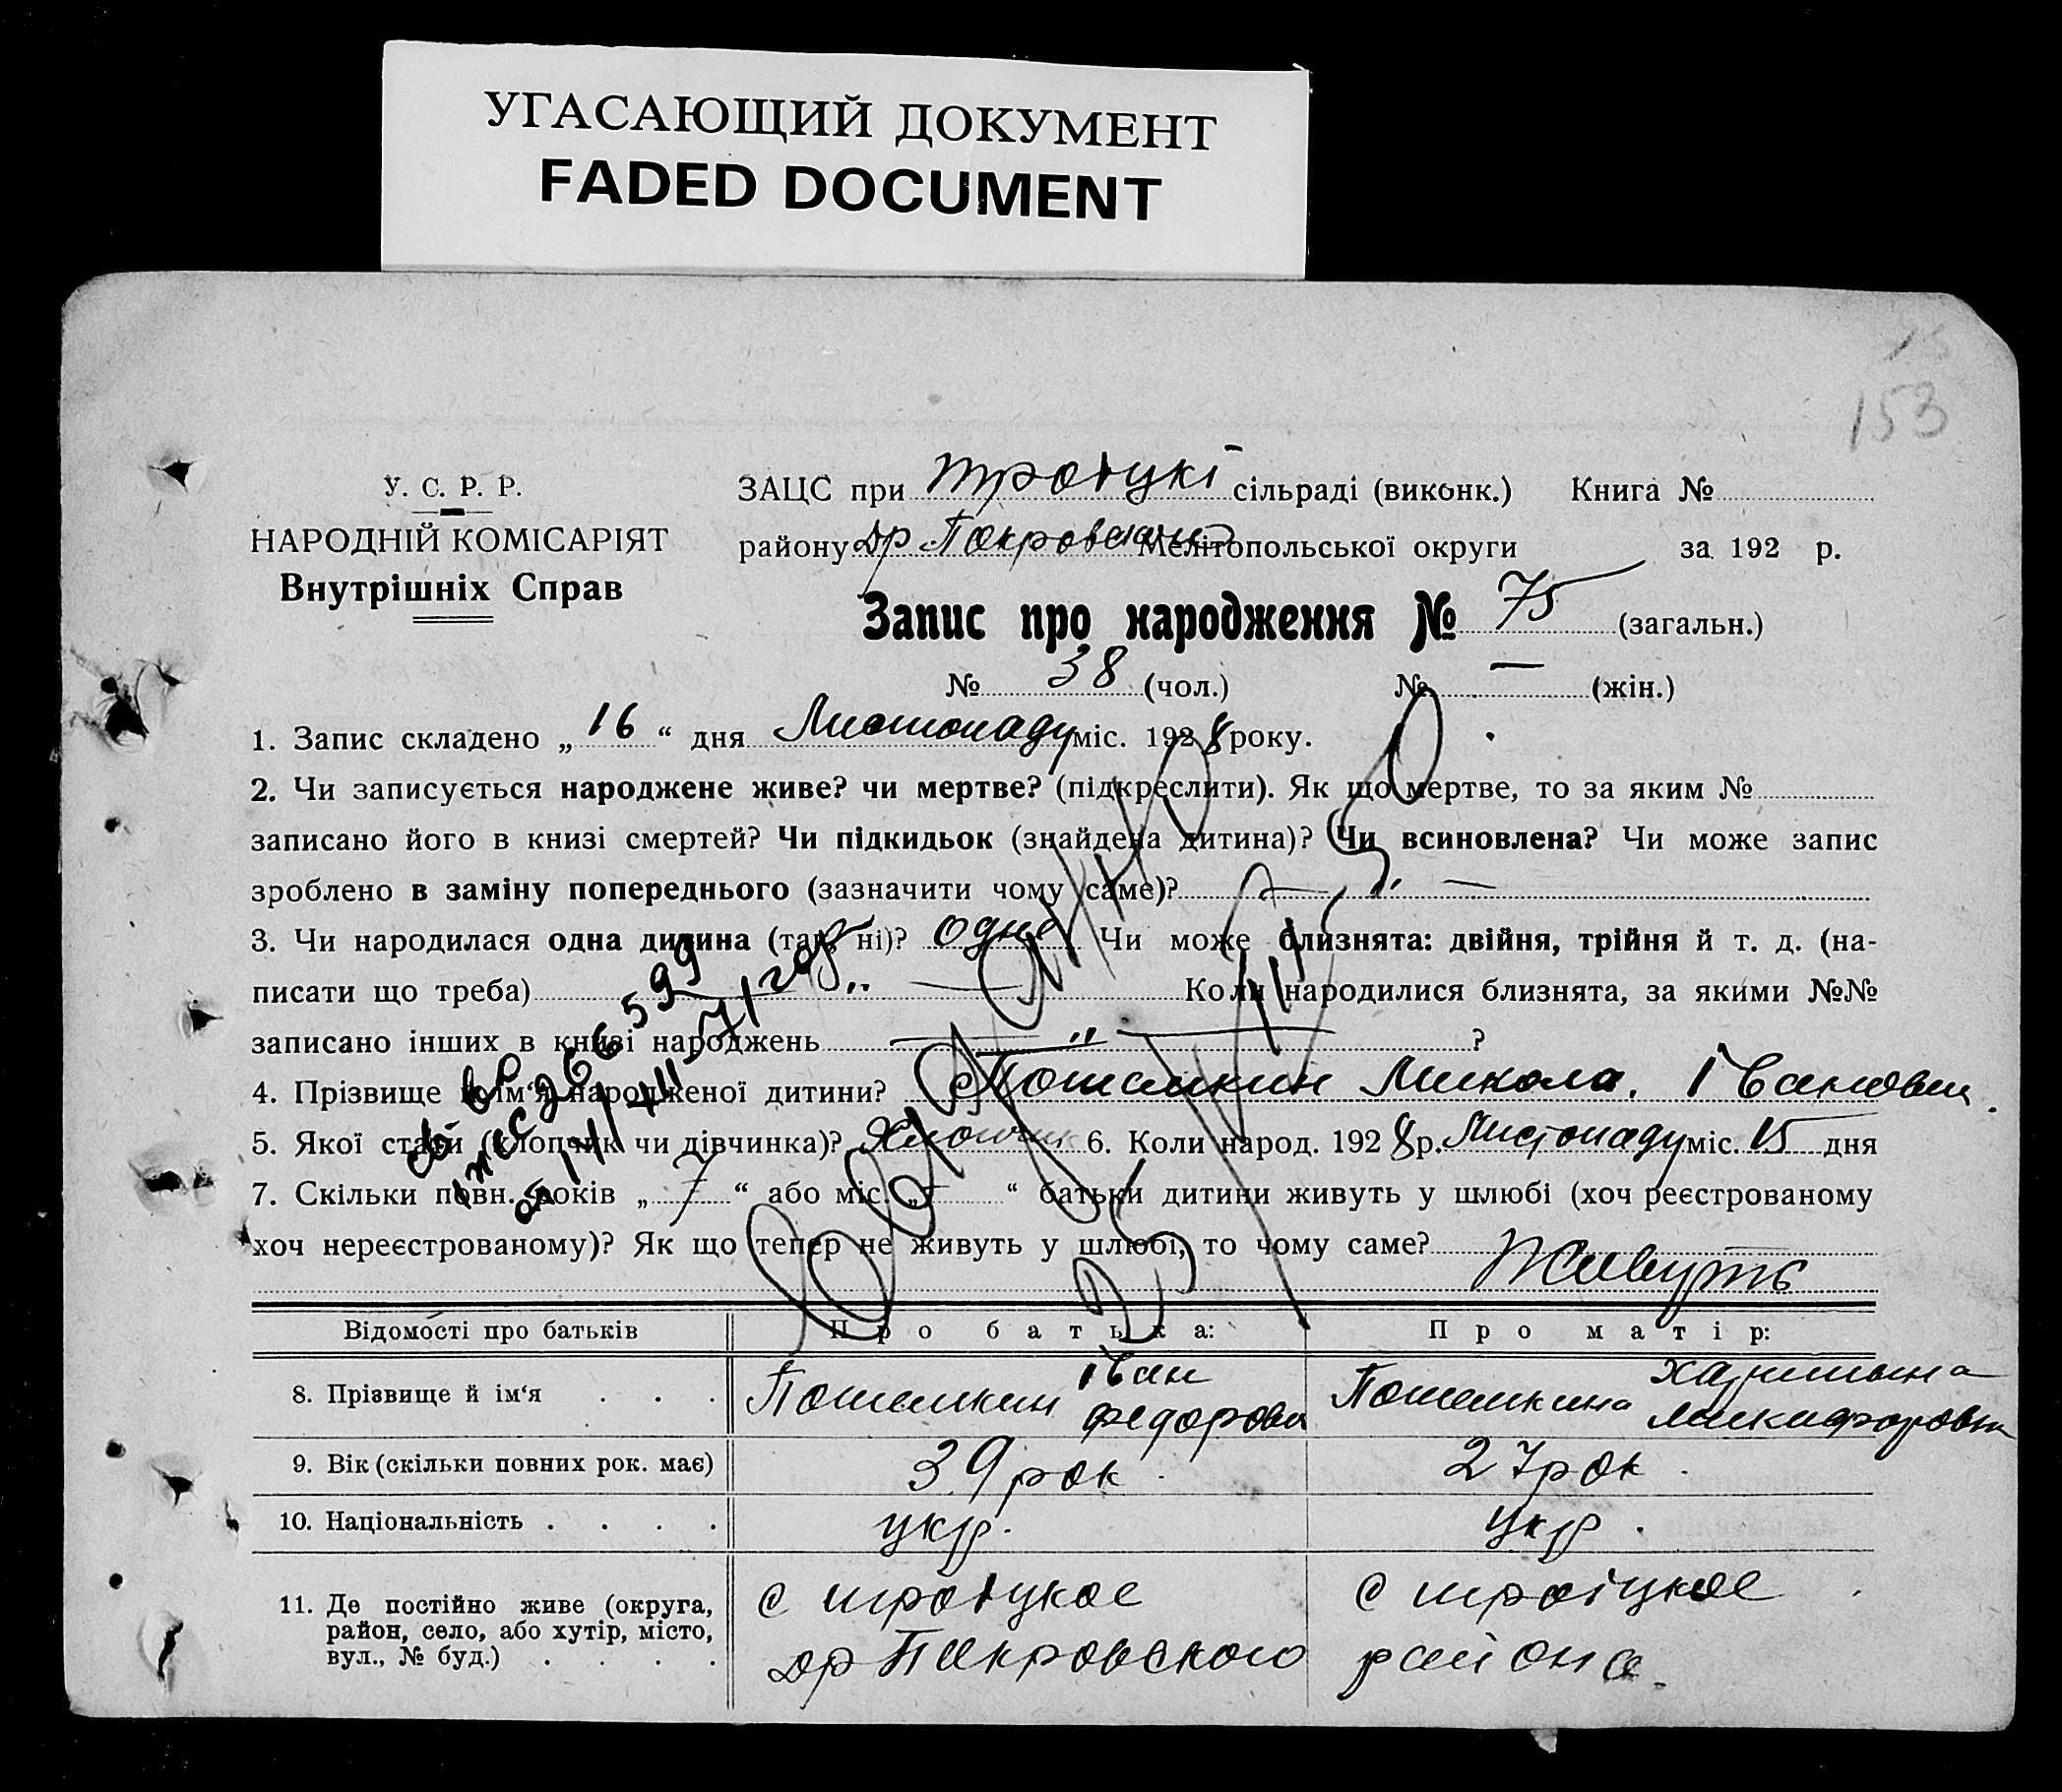 УГАСАЮЩИЙ ДОКУМЕНТ
FADED DOCUMENT
153
У. С. Р. Р.
НАРОДНІЙ КОМІСАРІЯТ
Внутрішніх Справ
ЗАЦС при Троіцкі сільраді (виконк.) Книга №
району др Покровский Мелітопольської округи за 192 р.
Запис про народження № 75 (загальн.)
№ 38 (чол.) № — (жін.)
1. Запис складено „ 16 “ дня Листопаду міс. 1928 року.
2. Чи записується народжене живе? чи мертве? (підкреслити). Як що мертве, то за яким №
записано його в книзі смертей? Чи підкидьок (знайдена дитина)? Чи всиновлена? Чи може запис
зроблено в заміну попереднього (зазначити чому саме)? —
3. Чи народилася одна дитина (так, ні)? одне Чи може близнята: двійня, трійня й т. д. (на-
писати що треба) — Коли народилися близнята, за якими №№
записано інших в книзі народжень — ?
4. Прізвище й ім‘я народженої дитини? Потемкин Микола Іванович
5. Якої стати (хлопчик чи дівчинка)? Хлопчик 6. Коли народ. 1928 р. Листопаду міс. 15 дня
7. Скільки повн. років „ 7 “ або міс. „ — “ батьки дитини живуть у шлюбі (хоч реєстрованому
хоч нереєстрованому)? Як що тепер не живуть у шлюбі, то чому саме?
Живуть
Відомості про батьків Про батька: Про матір:
8. Прізвище й ім‘я . . . Потемкин Іван Федорови Потемкина Харитына
9. Вік (скільки повних рок. має) 39 рок. 27 рок.
10. Національність . . . . укр. укр.
11. Де постійно живе (округа,
район, село, або хутір, місто,
вул., № буд.) . . . .
с троіцкое
др Покровского
с троіцкое
района.